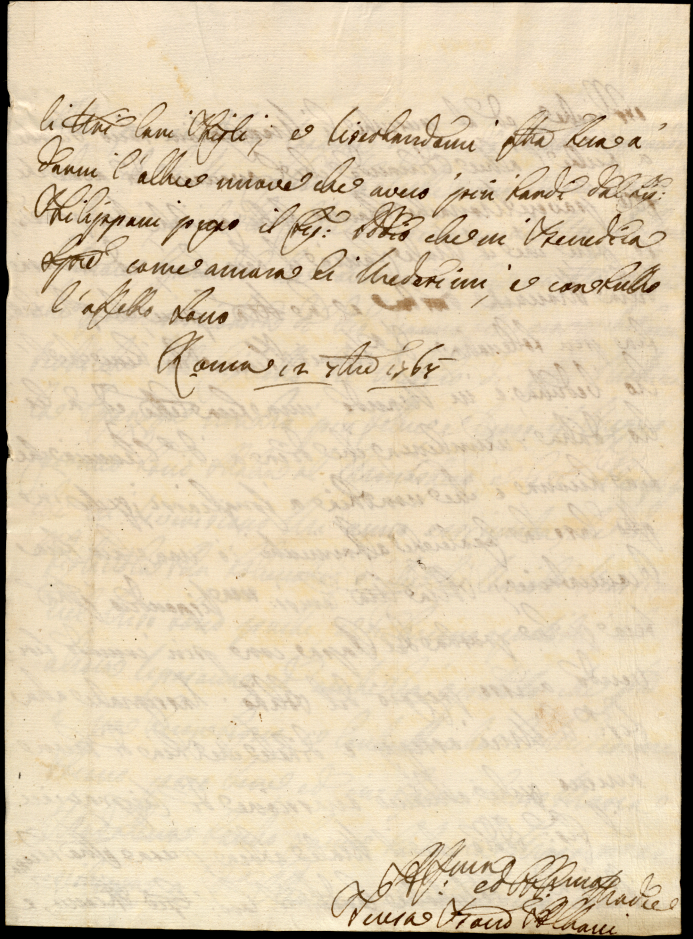 li tuoi cari Figli, e ricordandomi
darmi l'altre nuove che avero più tardi dal Sig:
Filippani prego il Sig: Iddio che vi benedica
come ancora li Medesimi, e con tutto
l'affetto sono
Roma 12 7bre 1765
Aff:ma ed Obb:ma Madre
Teresa Albani